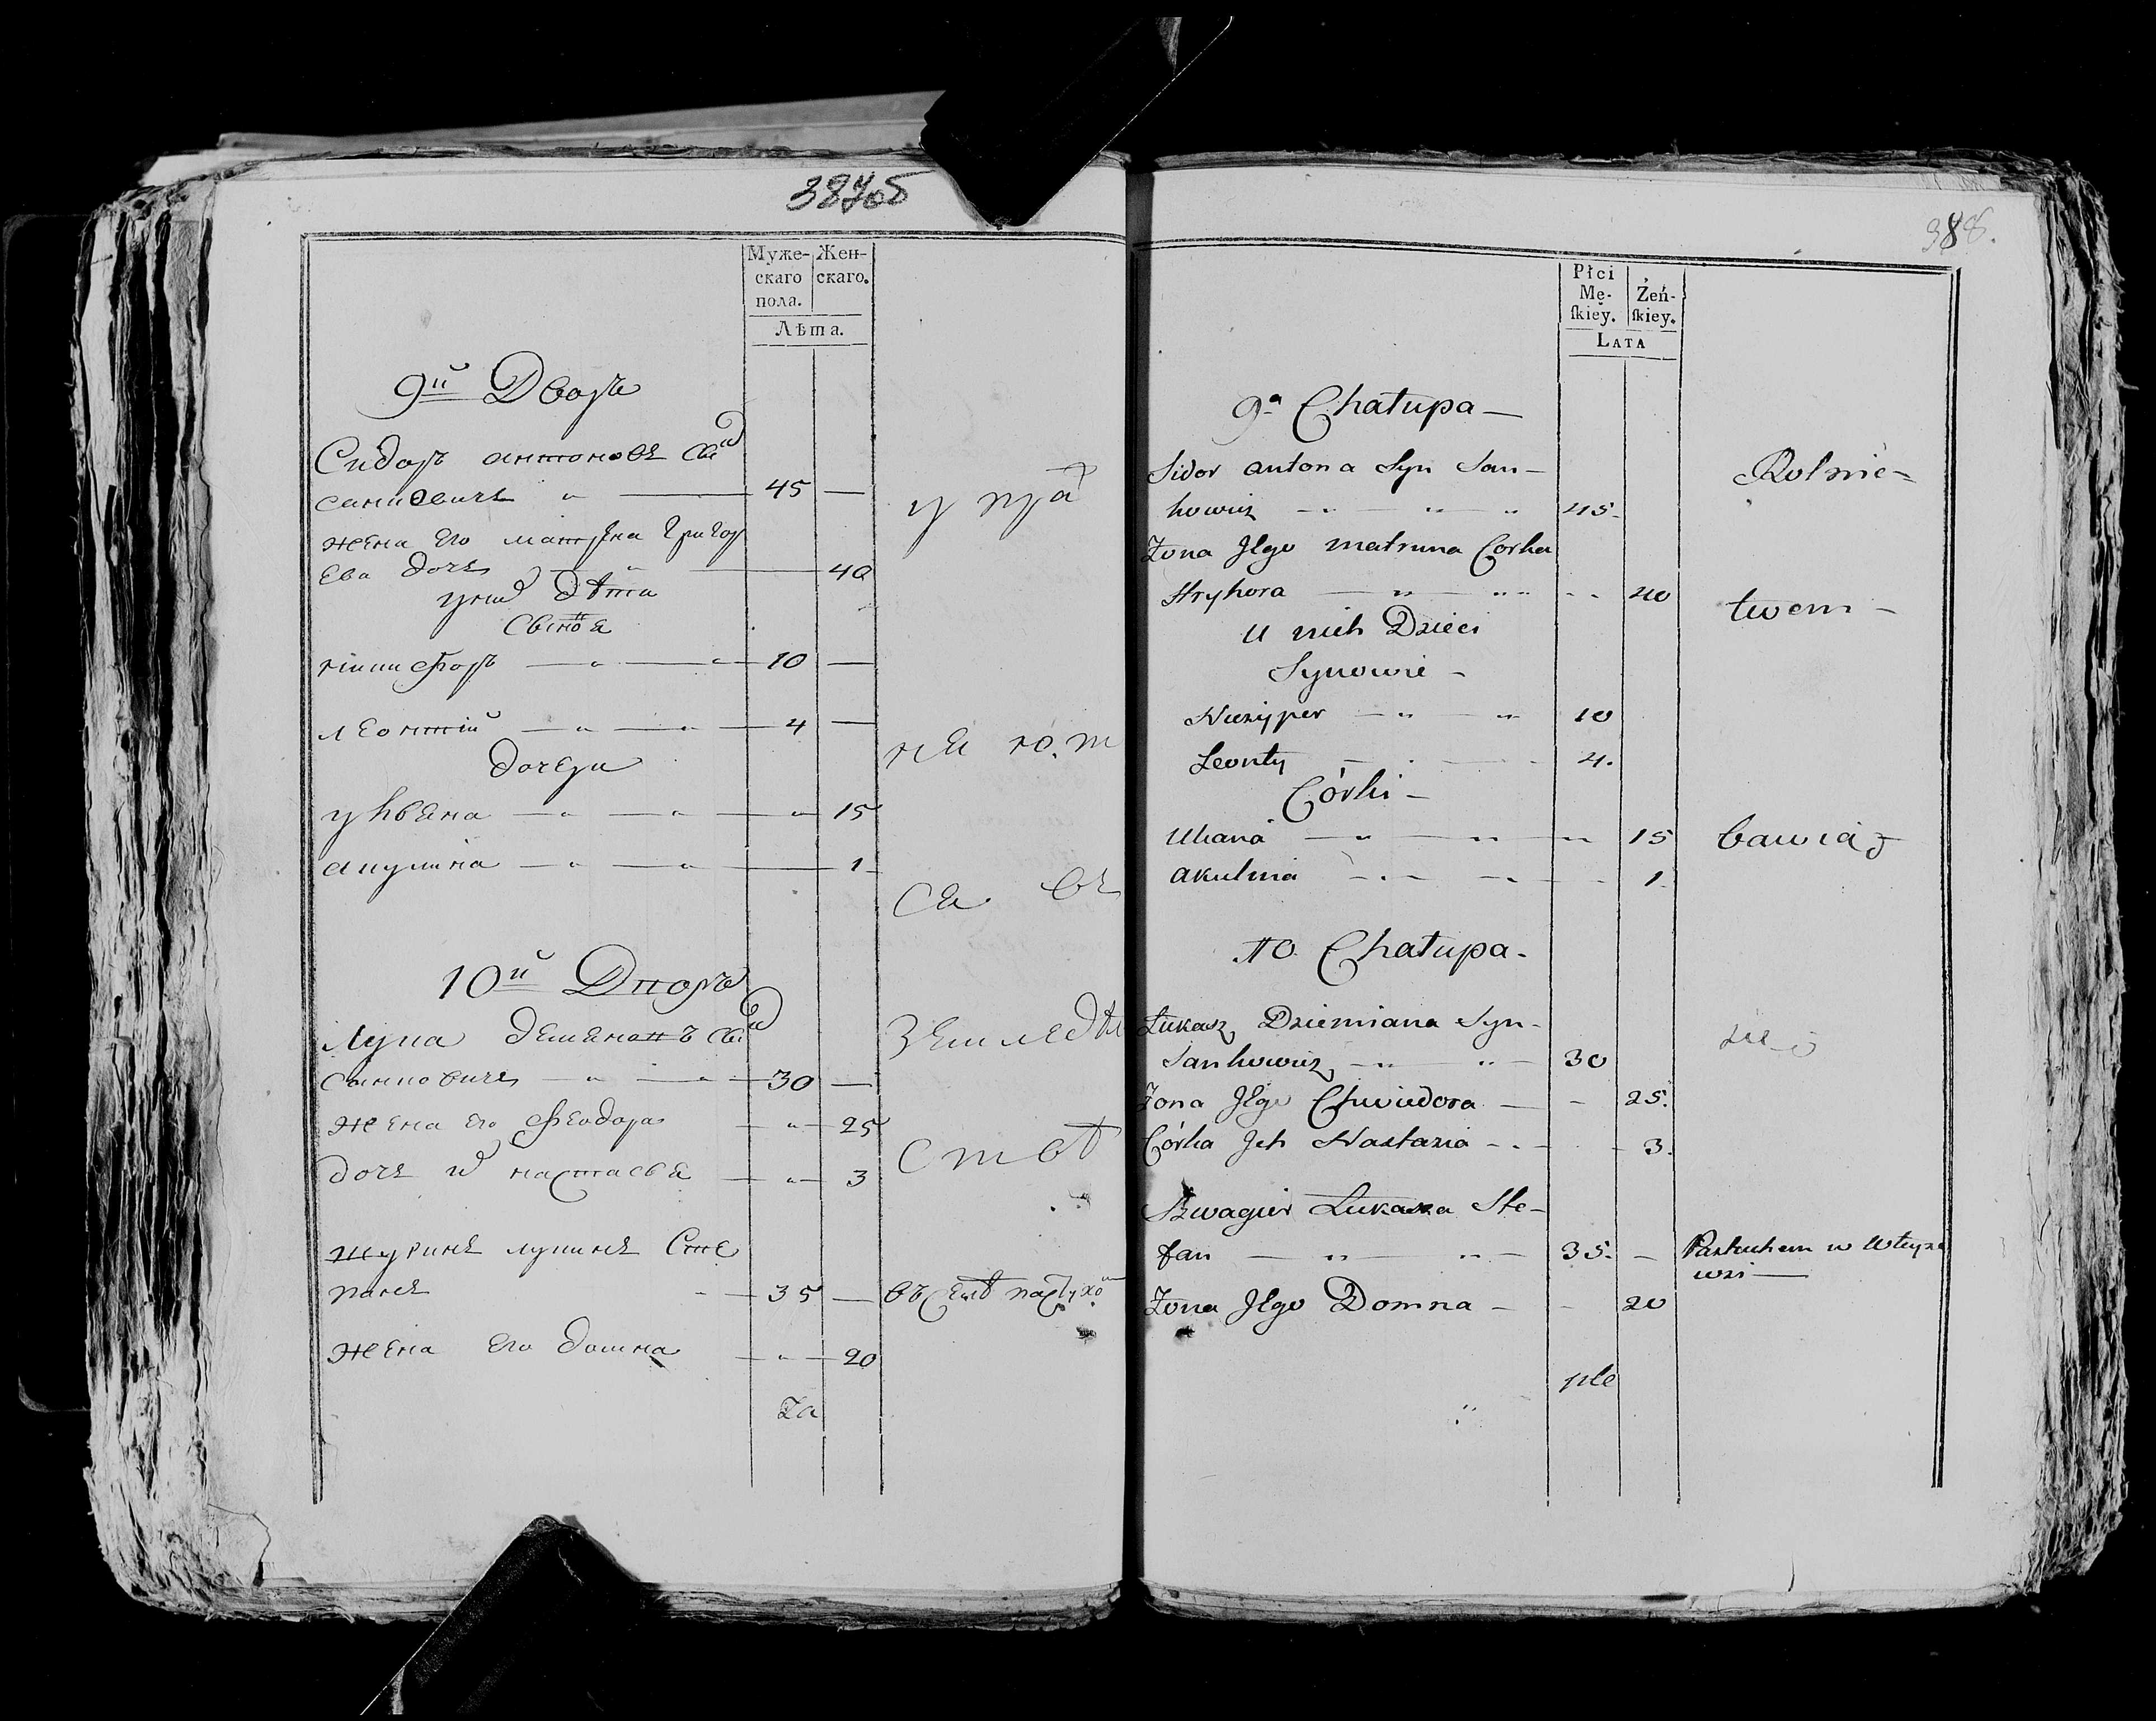 387об
Муже-
скаго
пола.
Жен-
скаго.
Лѣта.
9й Дворъ
Сидоръ антоновъ сын
санковичъ 45
жена его матрона Григор
ева дочь 40
у них дѣти
Сыновя
никифоръ 10
леонтий 4
дочери
ульяна 15
акулина 1
10й Дворъ
Лука демяновъ сын
санковичъ 30
жена его феодора 25
дочь их настасья 3
шуринъ лукинъ Сте
панъ 35
жена его домна 20
За
упра
ня ю.т
ся въ
землед
ств
въ селѣ пастухо
388.
Płci
Mę-
ſkiey.
Żeń-
ſkiey.
LATA
9a Chałupa
Sidor antona Syn San-
kowicz 45.
Żona Jego matruna Corka
Hryhora 40
u nich Dzieci
Synowie
Niczyper 10
Leonty 4.
Córki
Uliana 15
akulina 1.
10. Chałupa.
Łukasz Dziemiana Syn
Sankowicz 30
Żona Jego Chwiedora 25.
Córka Jch Nastazia 3.
Szwagier Łukasza Ste-
fan 35.
Żona Jego Domna 20
Rolnic-
twem
bawią
się
Pastuchem w teyze
wsi